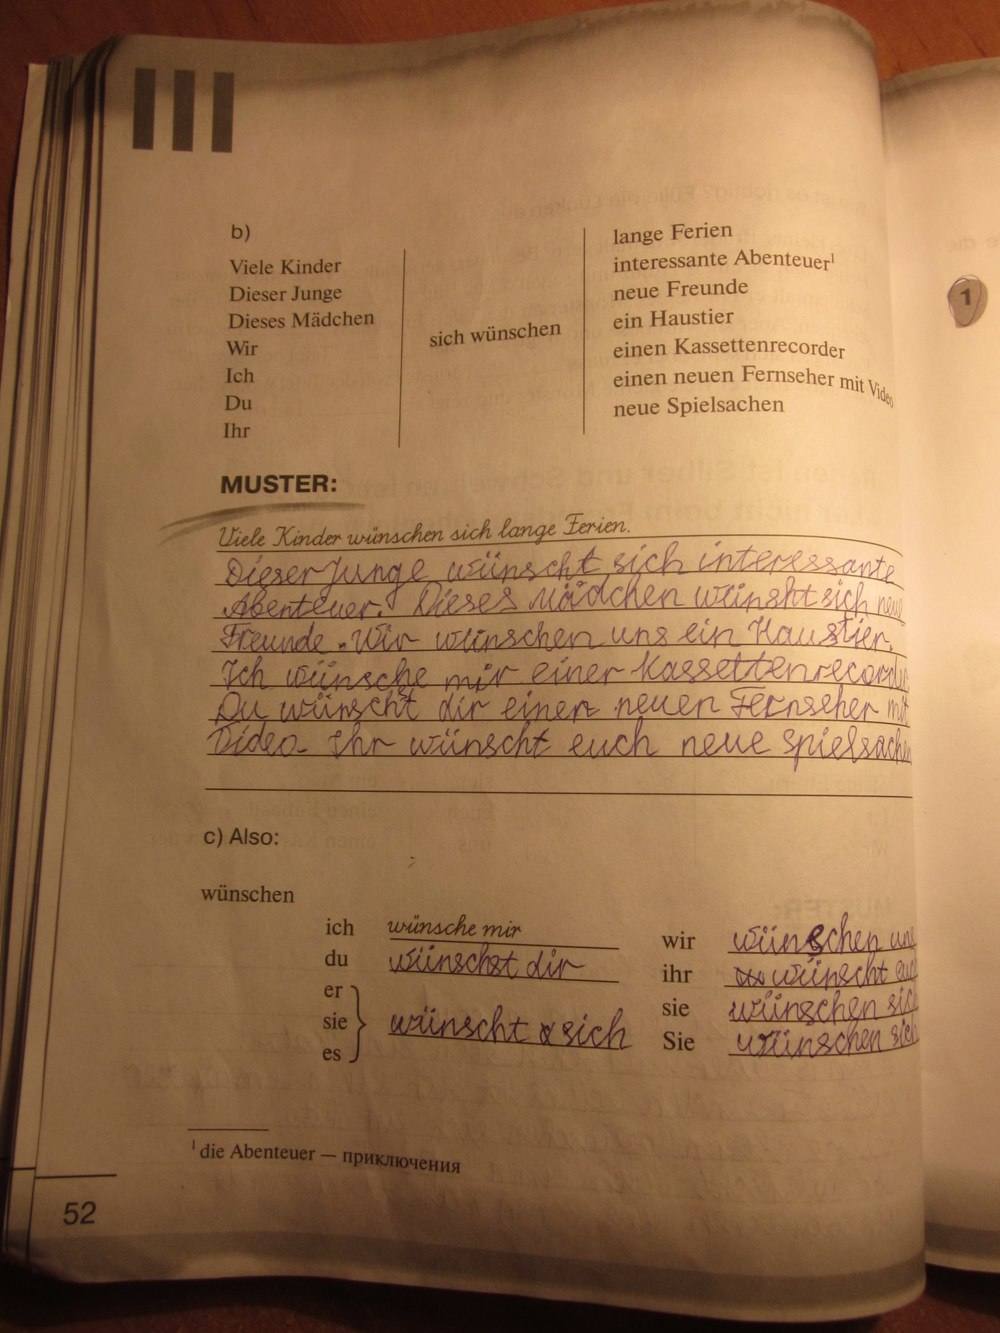 III
b)
Viele Kinder
Dieser Junge
Dieses Mädchen
Wir
Ich
Du
Ihr
sich wünschen
lange Ferien
interessante Abenteuer¹
neue Freunde
ein Haustier
einen Kassettenrecorder
einen neuen Fernseher mit Video
neue Spielsachen
MUSTER:
Viele Kinder wünschen sich lange Ferien.
Dieser Junge wünscht sich interessante
Abenteuer. Dieses Mädchen wünsht sich neue
Freunde. Wir wünschen uns ein Haustier.
Ich wünsche mir einer Kassettenrecorder
Du wünschst dir einen neuen Fernseher mit
Video. Ihr wünscht euch neue Spielsachen
c) Also:
wünschen
ich wünsche mir
du wünschst dir
er
sie wünscht sich
es
wir wünschen uns
ihr wünscht euch
sie wünschen sich
Sie wünschen sich
¹ die Abenteuer — приключения
52
1